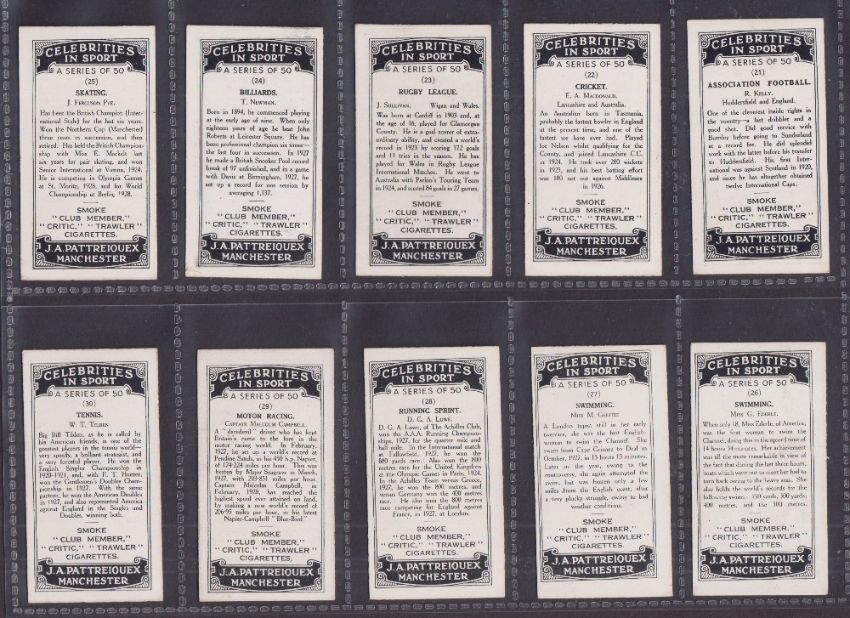 CELEBRITIES
IN SPORT
A SERIES OF 50
(25)
SKATING.
J. FERGUSON PYE.
Has been the British Champion (International Style) for the last six years.
Won the Northern Cup (Manchester)
three years in succession, and then
retired. He has held the British Championship
with Miss E. Muckelt last
six years for pair skating, and won
Senior International at Vienna, 1924.
He is competing in Olympia Games
at St. Moritz, 1928, and for World
Championship at Berlin, 1928.
SMOKE
"CLUB MEMBER,"
"CRITIC," "TRAWLER"
CIGARETTES.
J.A. PATTREIOUEX
MANCHESTER
CELEBRITIES
IN SPORT
A SERIES OF 50
(24)
BILLIARDS.
T. NEWMAN.
Born in 1894, he commenced playing
at the early age of nine. When only
eighteen years of age he beat John
Roberts at Leicester Square. He has
been professional champion six times—
the last four in succession. In 1927
he made a British Snooker Pool record
break of 97 unfinished, and in a game
with Davis at Birmingham, 1927, he
set up a record for one session by
averaging 1,137.
SMOKE
"CLUB MEMBER,"
"CRITIC," "TRAWLER"
CIGARETTES.
J.A. PATTREIOUEX
MANCHESTER
CELEBRITIES
IN SPORT
A SERIES OF 50
(23)
RUGBY LEAGUE.
J. SULLIVAN. Wigan and Wales.
Was born at Cardiff in 1903 and, at
the age of 16, played for Glamorgan
County. He is a goal scorer of extraordinary
ability, and created a world's
record in 1925 by scoring 172 goals
and 11 tries in the season. He has
played for Wales in Rugby League
International Matches. He went to
Australia with Parkin's Touring Team
in 1924, and scored 84 goals in 27 games.
SMOKE
"CLUB MEMBER,"
"CRITIC," "TRAWLER"
CIGARETTES.
J.A. PATTREIOUEX
MANCHESTER
CELEBRITIES
IN SPORT
A SERIES OF 50
(22)
CRICKET.
E. A. MACDONALD.
Lancashire and Australia.
An Australian born in Tasmania,
probably the fastest bowler in England
at the present time, and one of the
best we have ever had. Played
for Nelson whilst qualifying for the
County, and joined Lancashire C.C.
in 1924. He took over 200 wickets
in 1925, and his best batting effort
was 100 not out against Middlesex
in 1926.
SMOKE
"CLUB MEMBER,"
"CRITIC," "TRAWLER"
CIGARETTES.
J.A. PATTREIOUEX
MANCHESTER
CELEBRITIES
IN SPORT
A SERIES OF 50
(21)
ASSOCIATION FOOTBALL.
R. KELLY.
Huddersfield and England.
One of the cleverest inside rights in
the country—a fast dribbler and a
good shot. Did good service with
Burnley before going to Sunderland
at a record fee. He did splendid
work with the latter before his transfer
to Huddersfield. His first International
was against Scotland in 1920,
and since he has altogether obtained
twelve International Caps.
SMOKE
"CLUB MEMBER,"
"CRITIC," "TRAWLER"
CIGARETTES.
J.A. PATTREIOUEX
MANCHESTER
CELEBRITIES
IN SPORT
A SERIES OF 50
(30)
TENNIS.
W. T. TILDEN
Big Bill Tilden, as he is called by
his American friends, is one of the
greatest players in the tennis world—
very speedy, a brilliant strategist, and
a very forceful player. He won the
English Singles Championship in
1920-1921, and, with F. T. Hunter,
won the Gentlemen's Doubles Championship
in 1927. With the same
partner, he won the American Doubles
in 1927, and also represented America
against England in the Singles and
Doubles, winning both.
SMOKE
"CLUB MEMBER,"
"CRITIC," "TRAWLER"
CIGARETTES.
J.A. PATTREIOUEX
MANCHESTER
CELEBRITIES
IN SPORT
A SERIES OF 50
(29)
MOTOR RACING.
CAPTAIN MALCOLM CAMPBELL.
A "daredevil" driver who has kept
Britain's name to the fore in the
motor racing world. In February,
1927, he set up a world's record at
Pendine Sands, in his 450 h.p. Napier,
of 174·224 miles per hour. This was
beaten by Major Seagrave in March,
1927, with 203·851 miles per hour.
Captain Malcolm Campbell, in
February, 1928, has reached the
highest speed ever attained on land,
by making a new world's record of
206·95 miles per hour, in his latest
Napier-Campbell "Blue-Bird."
SMOKE
"CLUB MEMBER,"
"CRITIC," "TRAWLER"
CIGARETTES.
J.A. PATTREIOUEX
MANCHESTER
CELEBRITIES
IN SPORT
A SERIES OF 50
(28)
RUNNING SPRINT.
D. G. A. LOWE.
D. G. A. Lowe, of The Achilles Club,
won the A.A.A. Running Championships,
1927, for the quarter mile and
half mile. In the International match
at Fallowfield, 1927, he won the
880 yards race. Also won the 800
metres race for the United Kingdom
at the Olympic Games in Paris, 1924.
In the Achilles Team versus Greece,
1927, he won the 800 metres, and
versus Germany won the 400 metres
race. He also won the 800 metres
race competing for England against
France, in 1927, at London.
SMOKE
"CLUB MEMBER,"
"CRITIC," "TRAWLER"
CIGARETTES.
J.A. PATTREIOUEX
MANCHESTER
CELEBRITIES
IN SPORT
A SERIES OF 50
(27)
SWIMMING.
MISS M. GLEITZE
A London typist still in her early
twenties, she was the first English-
woman to swim the Channel. She
swam from Cape Grisnez to Deal in
October, 1927, in 15 hours 15 minutes.
Later in the year, owing to the
controversy, she again attempted the
swim, but was beaten only a few
miles from the English coast, after
a very plucky struggle, owing to bad
weather conditions.
SMOKE
"CLUB MEMBER,"
"CRITIC," "TRAWLER"
CIGARETTES.
J.A. PATTREIOUEX
MANCHESTER
CELEBRITIES
IN SPORT
A SERIES OF 50
(26)
SWIMMING.
MISS G. EDERLE.
When only 18, Miss Ederle, of America,
was the first woman to swim the
Channel, doing this in the record time of
14 hours 34 minutes. Her achievement
was all the more remarkable in view of
the fact that during the last three hours,
boats which were out to meet her had to
turn back owing to the heavy seas. She
also holds the world's records for the
following swims: 150 yards, 300 yards,
400 metres, and the 100 metres.
SMOKE
"CLUB MEMBER,"
"CRITIC," "TRAWLER"
CIGARETTES.
J.A. PATTREIOUEX
MANCHESTER